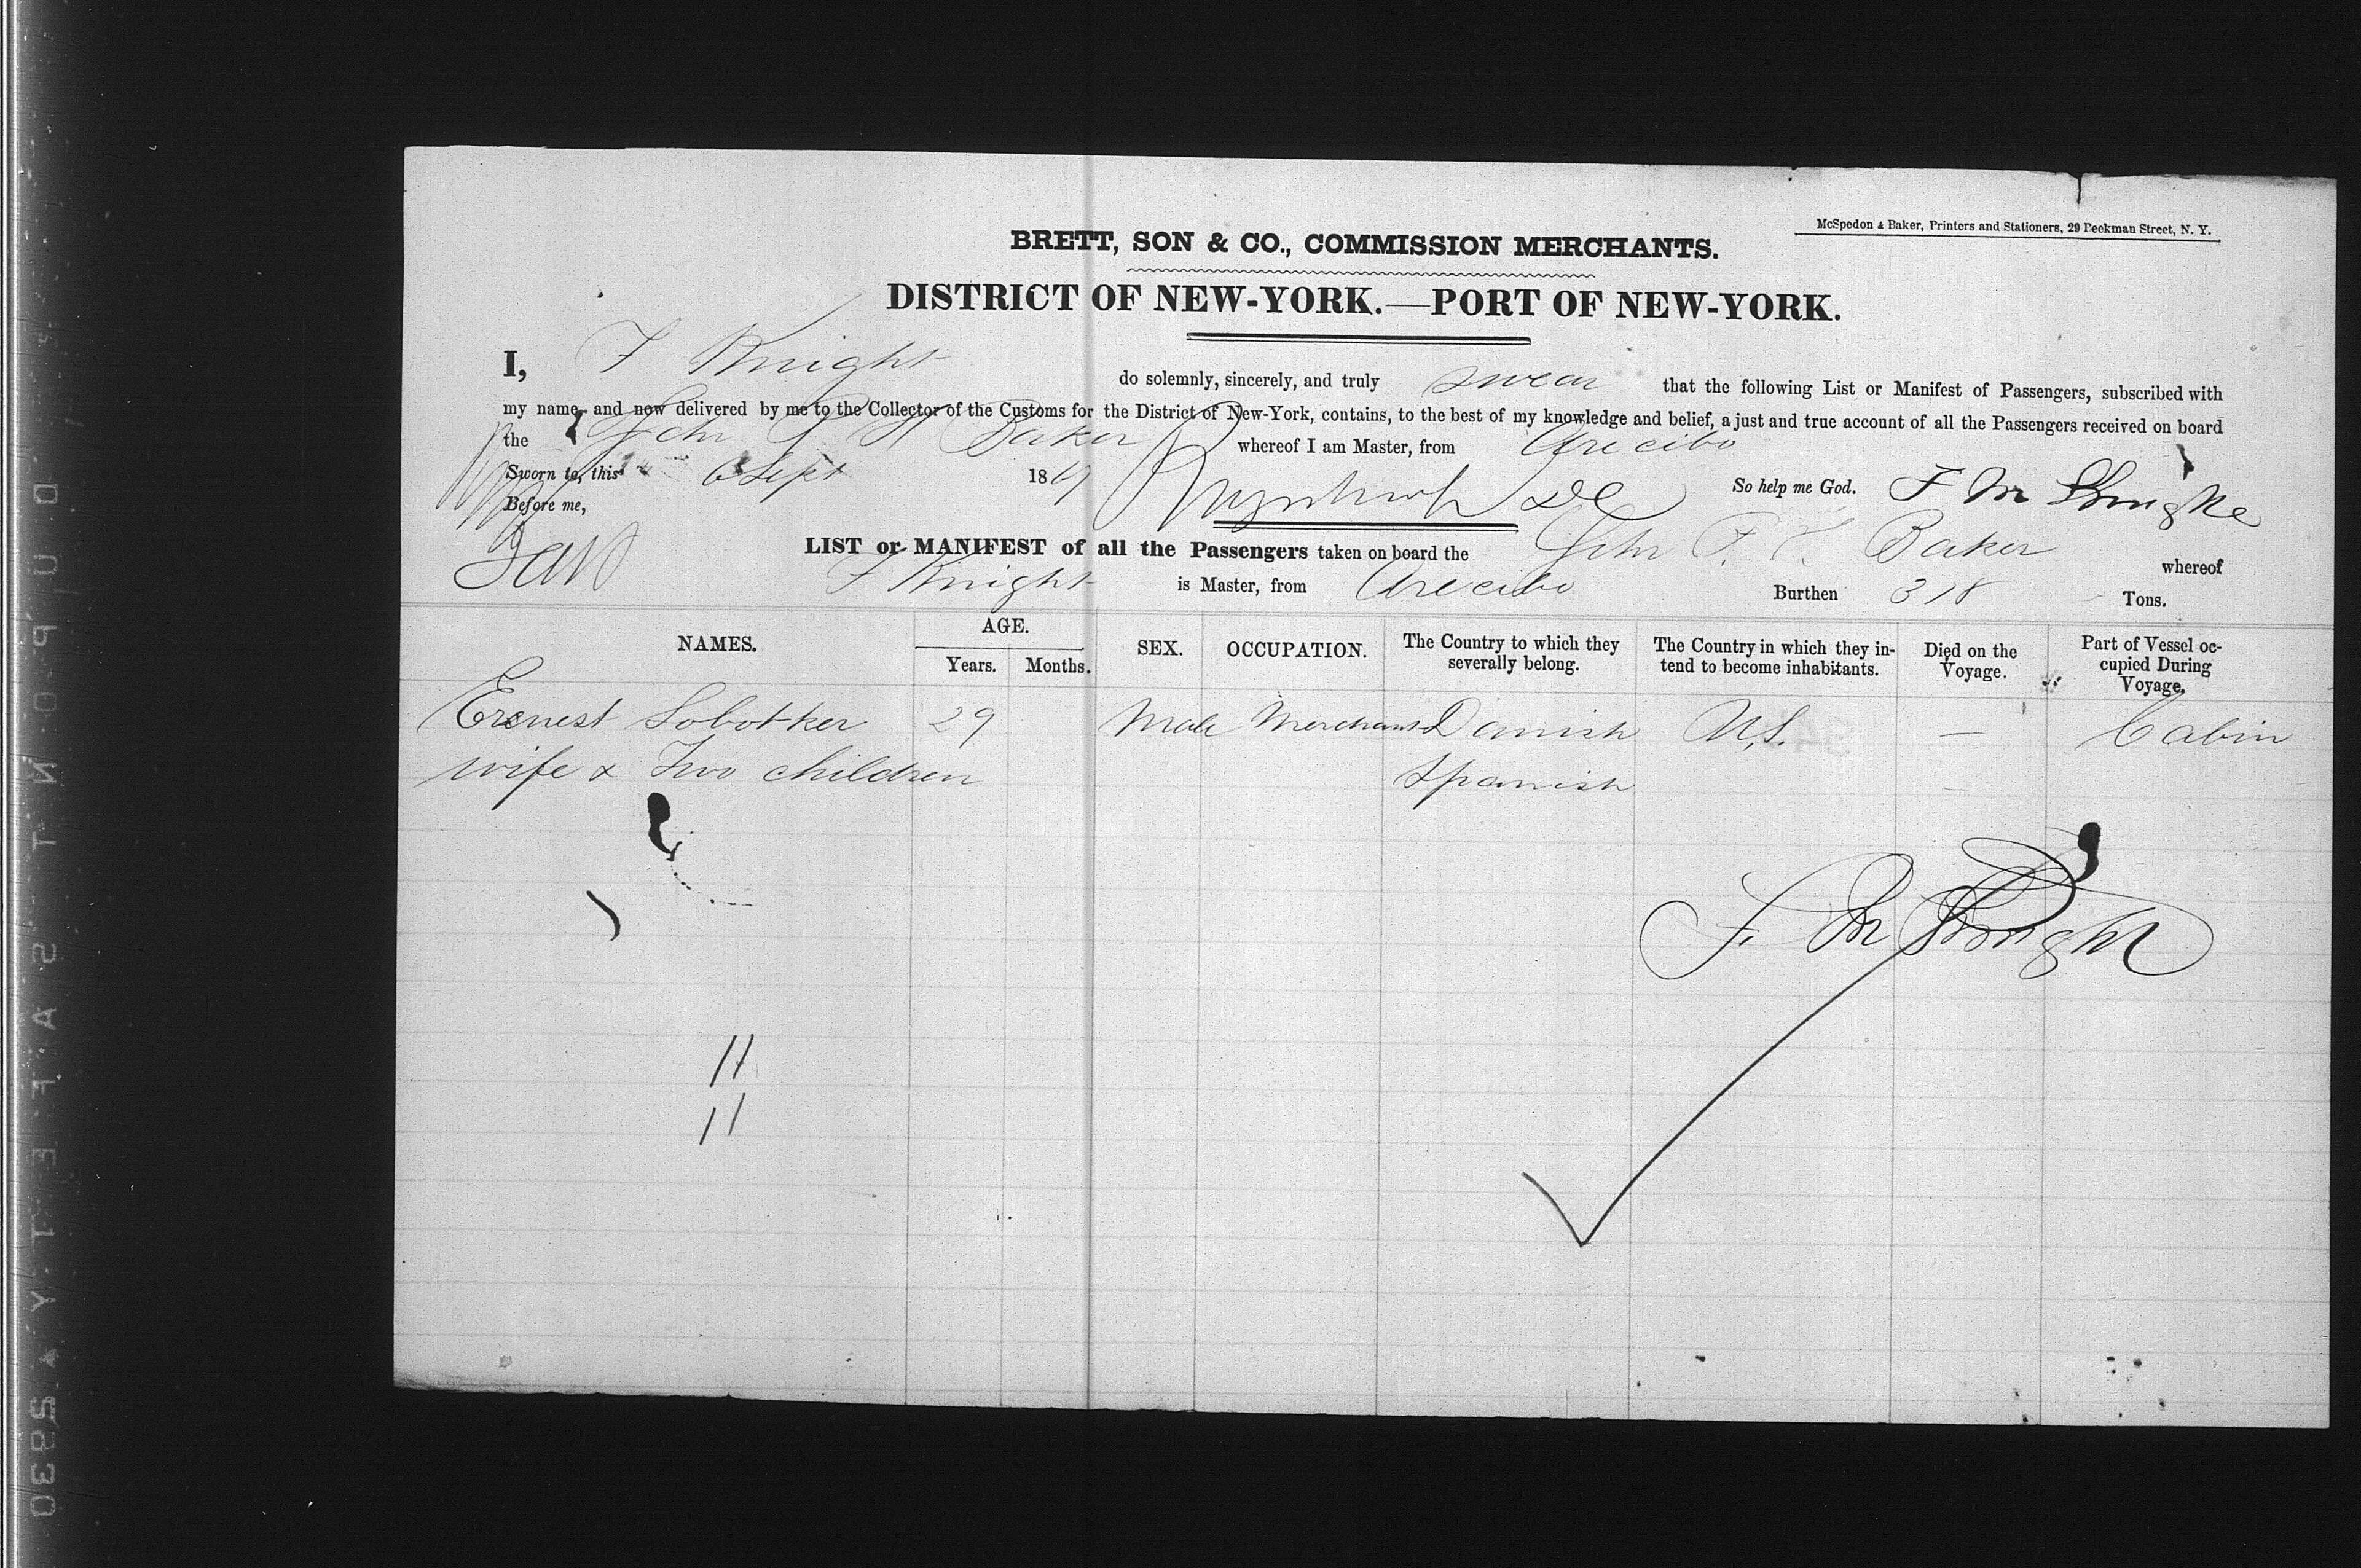 McSpedon & Baker, Printers and Stationers, 29 Beekman Street, N. Y.
BRETT, SON & CO., COMMISSION MERCHANTS.
DISTRICT OF NEW-YORK.—PORT OF NEW-YORK.
I, F Knight do solemnly, sincerely, and truly swear that the following List or Manifest of Passengers, subscribed with
my name, and now delivered by me to the Collector of the Customs for the District of New-York, contains, to the best of my knowledge and belief, a just and true account of all the Passengers received on board
the John Baker whereof I am Master, from Arecibo
Sworn to, this 6 Sept 1869 So help me God. F M Knight
Before me,
LIST or MANIFEST of all the Passengers taken on board the John Baker whereof
F Knight is Master, from Arecibo Burthen 318 Tons.
NAMES. AGE. Years. Months. SEX. OCCUPATION. The Country to which they severally belong. The Country in which they intend to become inhabitants. Died on the Voyage. Part of Vessel occupied During Voyage.
Erenest Sobotker 29 Male Merchant Danish U.S. — Cabin
wife & Two children Spanish —
F. M Knight
DUPONT SAFETY 2930